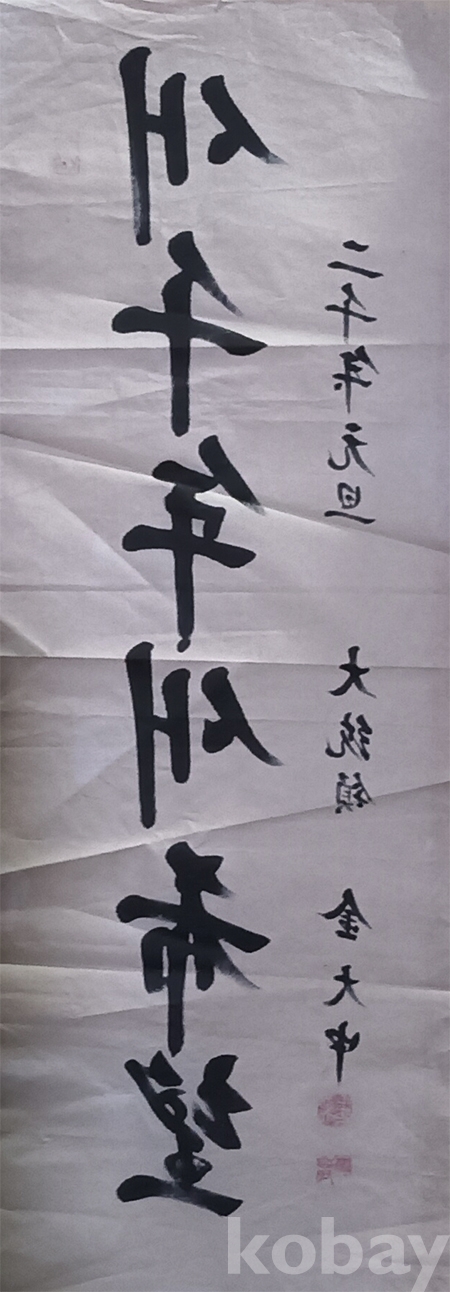 새千年새希望
二千年元旦
大統領 金大中
kobay